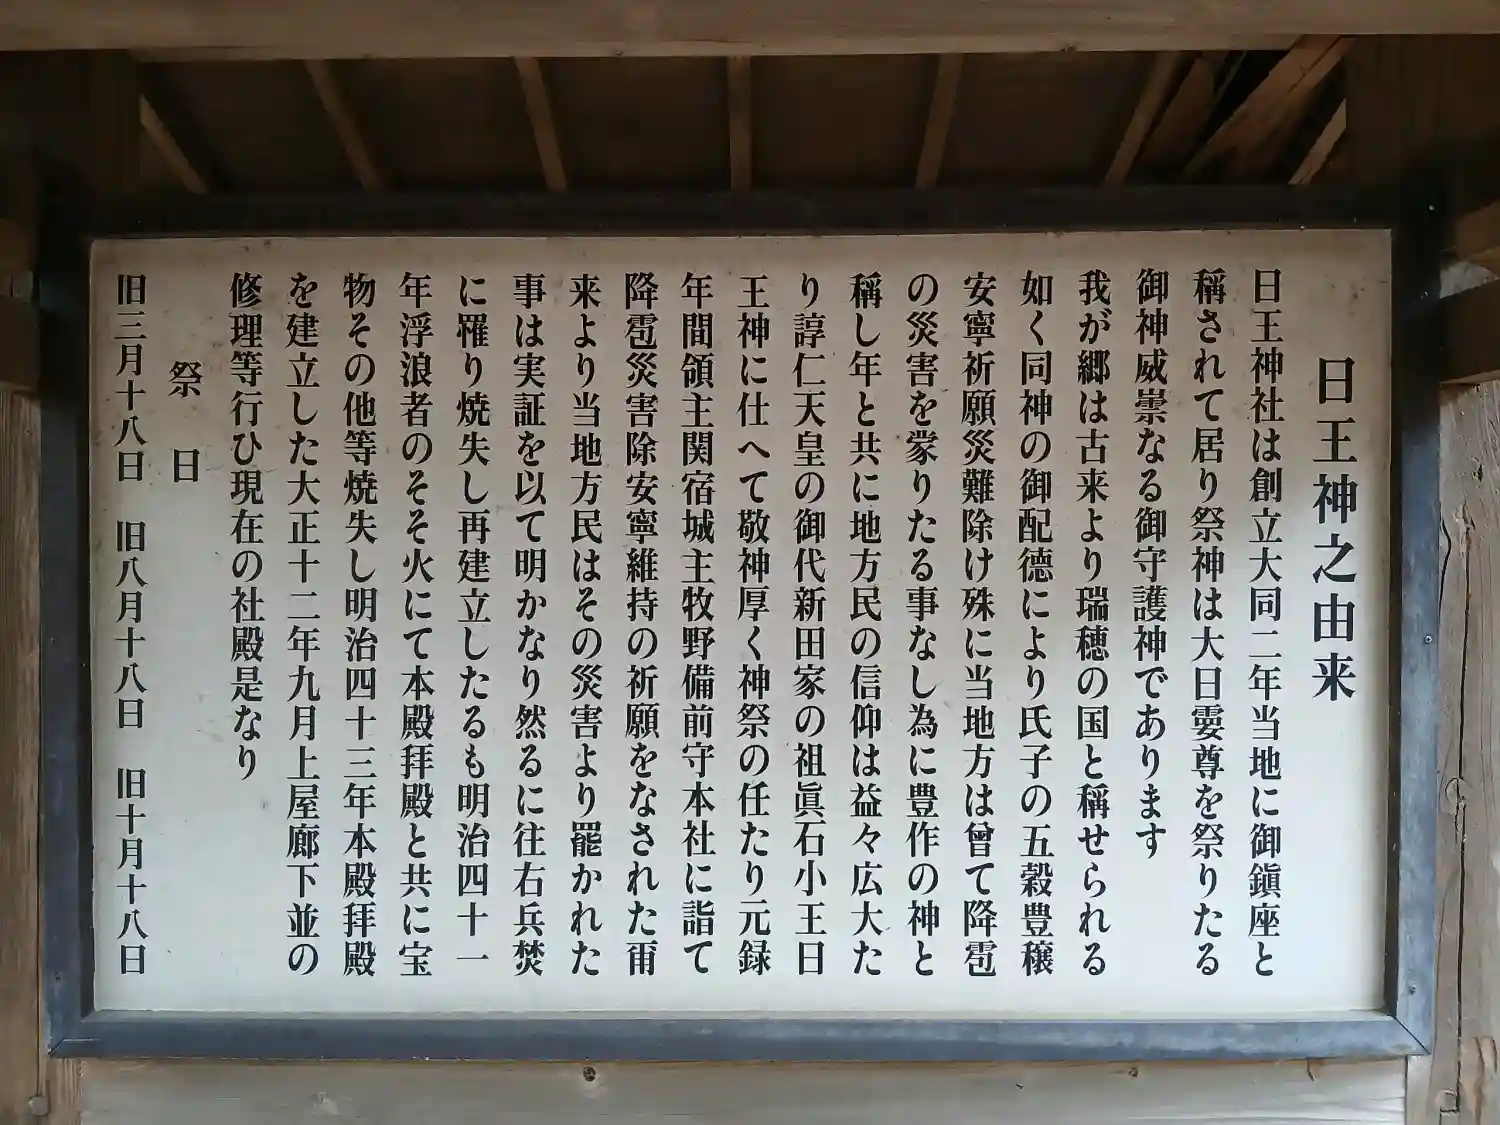 日王神社之由来
日王神社は創立大同二年当地に御鎭座と
稱されて居り祭神は大日孁尊を祭りたる
御神威崇なる御守護神であります
我が郷は古来より瑞穂の国と稱せられる
如く同神の御配德により氏子の五穀豊穣
安寧祈願災難除け殊に当地方は曾て降雹
の災害を蒙りたる事なし為に豊作の神と
稱し年と共に地方民の信仰は益々広大た
り諄仁天皇の御代新田家の祖眞石小王日
王神に仕へて敬神厚く神祭の任たり元録
年間領主関宿城主牧野備前守本社に詣て
降雹災害除安寧維持の祈願をなされた爾
来より当地方民はその災害より罷かれた
事は実証を以て明かなり然るに往右兵焚
に罹り焼失し再建立したるも明治四十一
年浮浪者のそそ火にて本殿拝殿と共に宝
物その他等焼失し明治四十三年本殿拝殿
を建立した大正十二年九月上屋廊下並の
修理等行ひ現在の社殿是なり
祭日
旧三月十八日 旧八月十八日 旧十月十八日